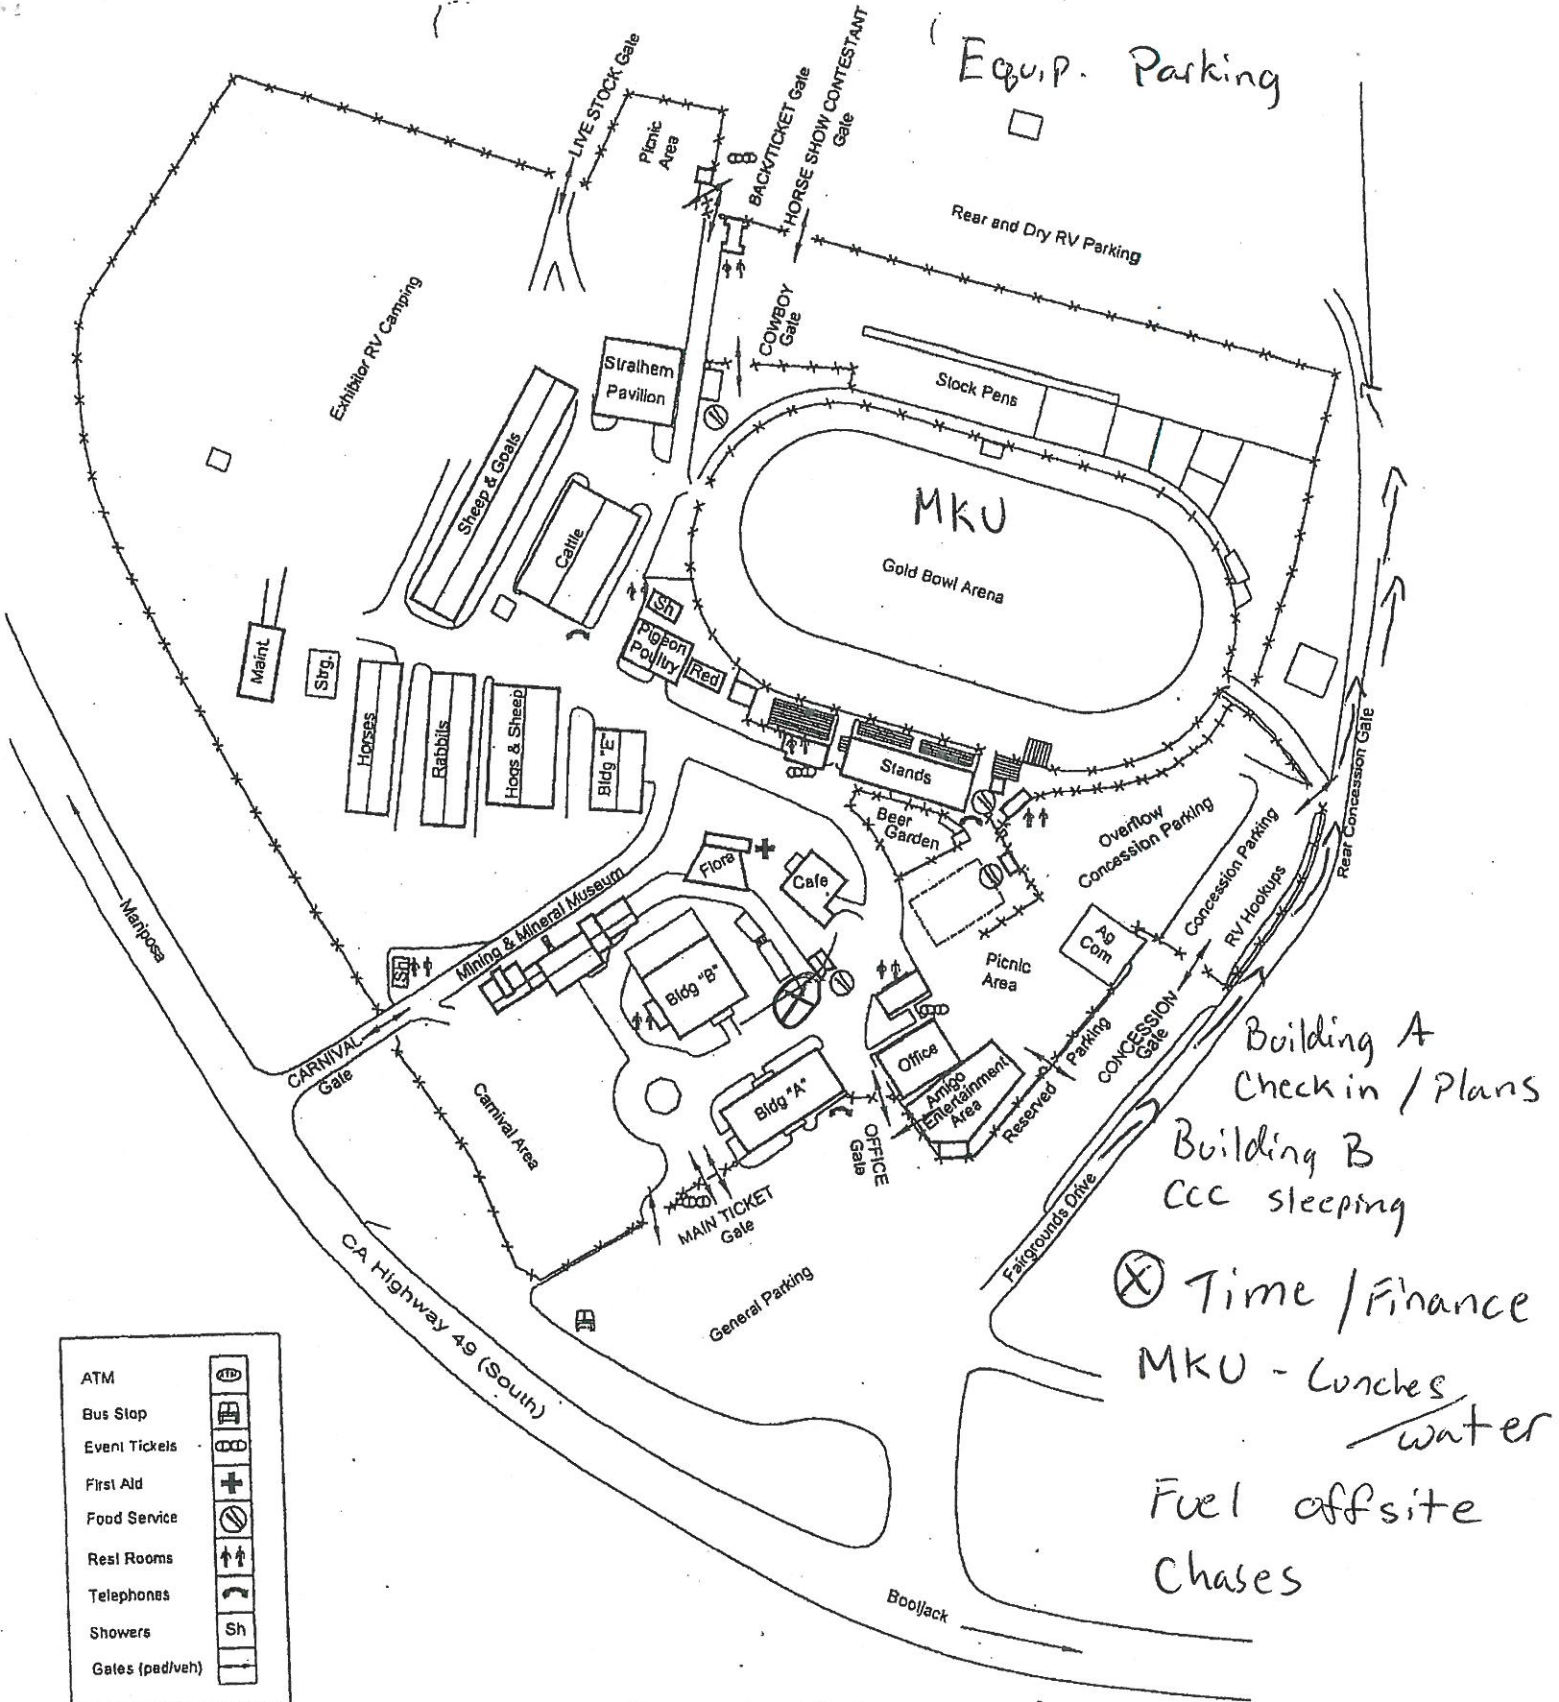 Equip. Parking
LIVE STOCK Gate
Picnic
Area
BACK/TICKET Gate
HORSE SHOW CONTESTANT
Gate
Rear and Dry RV Parking
Exhibitor RV Camping
COWBOY
Gate
Stralhem
Pavilion
Stock Pens
Sheep & Goats
Cattle
MKU
Gold Bowl Arena
Sh
Pigeon
Poultry
Red
Maint.
Strg.
Horses
Rabbits
Hogs & Sheep
Bldg "E"
Stands
Beer
Garden
Overflow
Concession Parking
Concession Parking
RV Hookups
Rear Concession Gate
Flora
Cafe
Mariposa
Mining & Mineral Museum
Sh
Bldg "B"
Ag
Com
Picnic
Area
CARNIVAL
Gate
Carnival Area
Bldg "A"
Office
Amigo
Entertainment
Area
Reserved Parking
CONCESSION
Gate
OFFICE
Gate
MAIN TICKET
Gate
Fairgrounds Drive
General Parking
CA Highway 49 (South)
Bootjack
Building A
Check in / Plans
Building B
CCC sleeping
X Time / Finance
MKU - Lunches
/ water
Fuel offsite
Chases
ATM ATM
Bus Stop
Event Tickets
First Aid
Food Service
Rest Rooms
Telephones
Showers Sh
Gates (ped/veh)